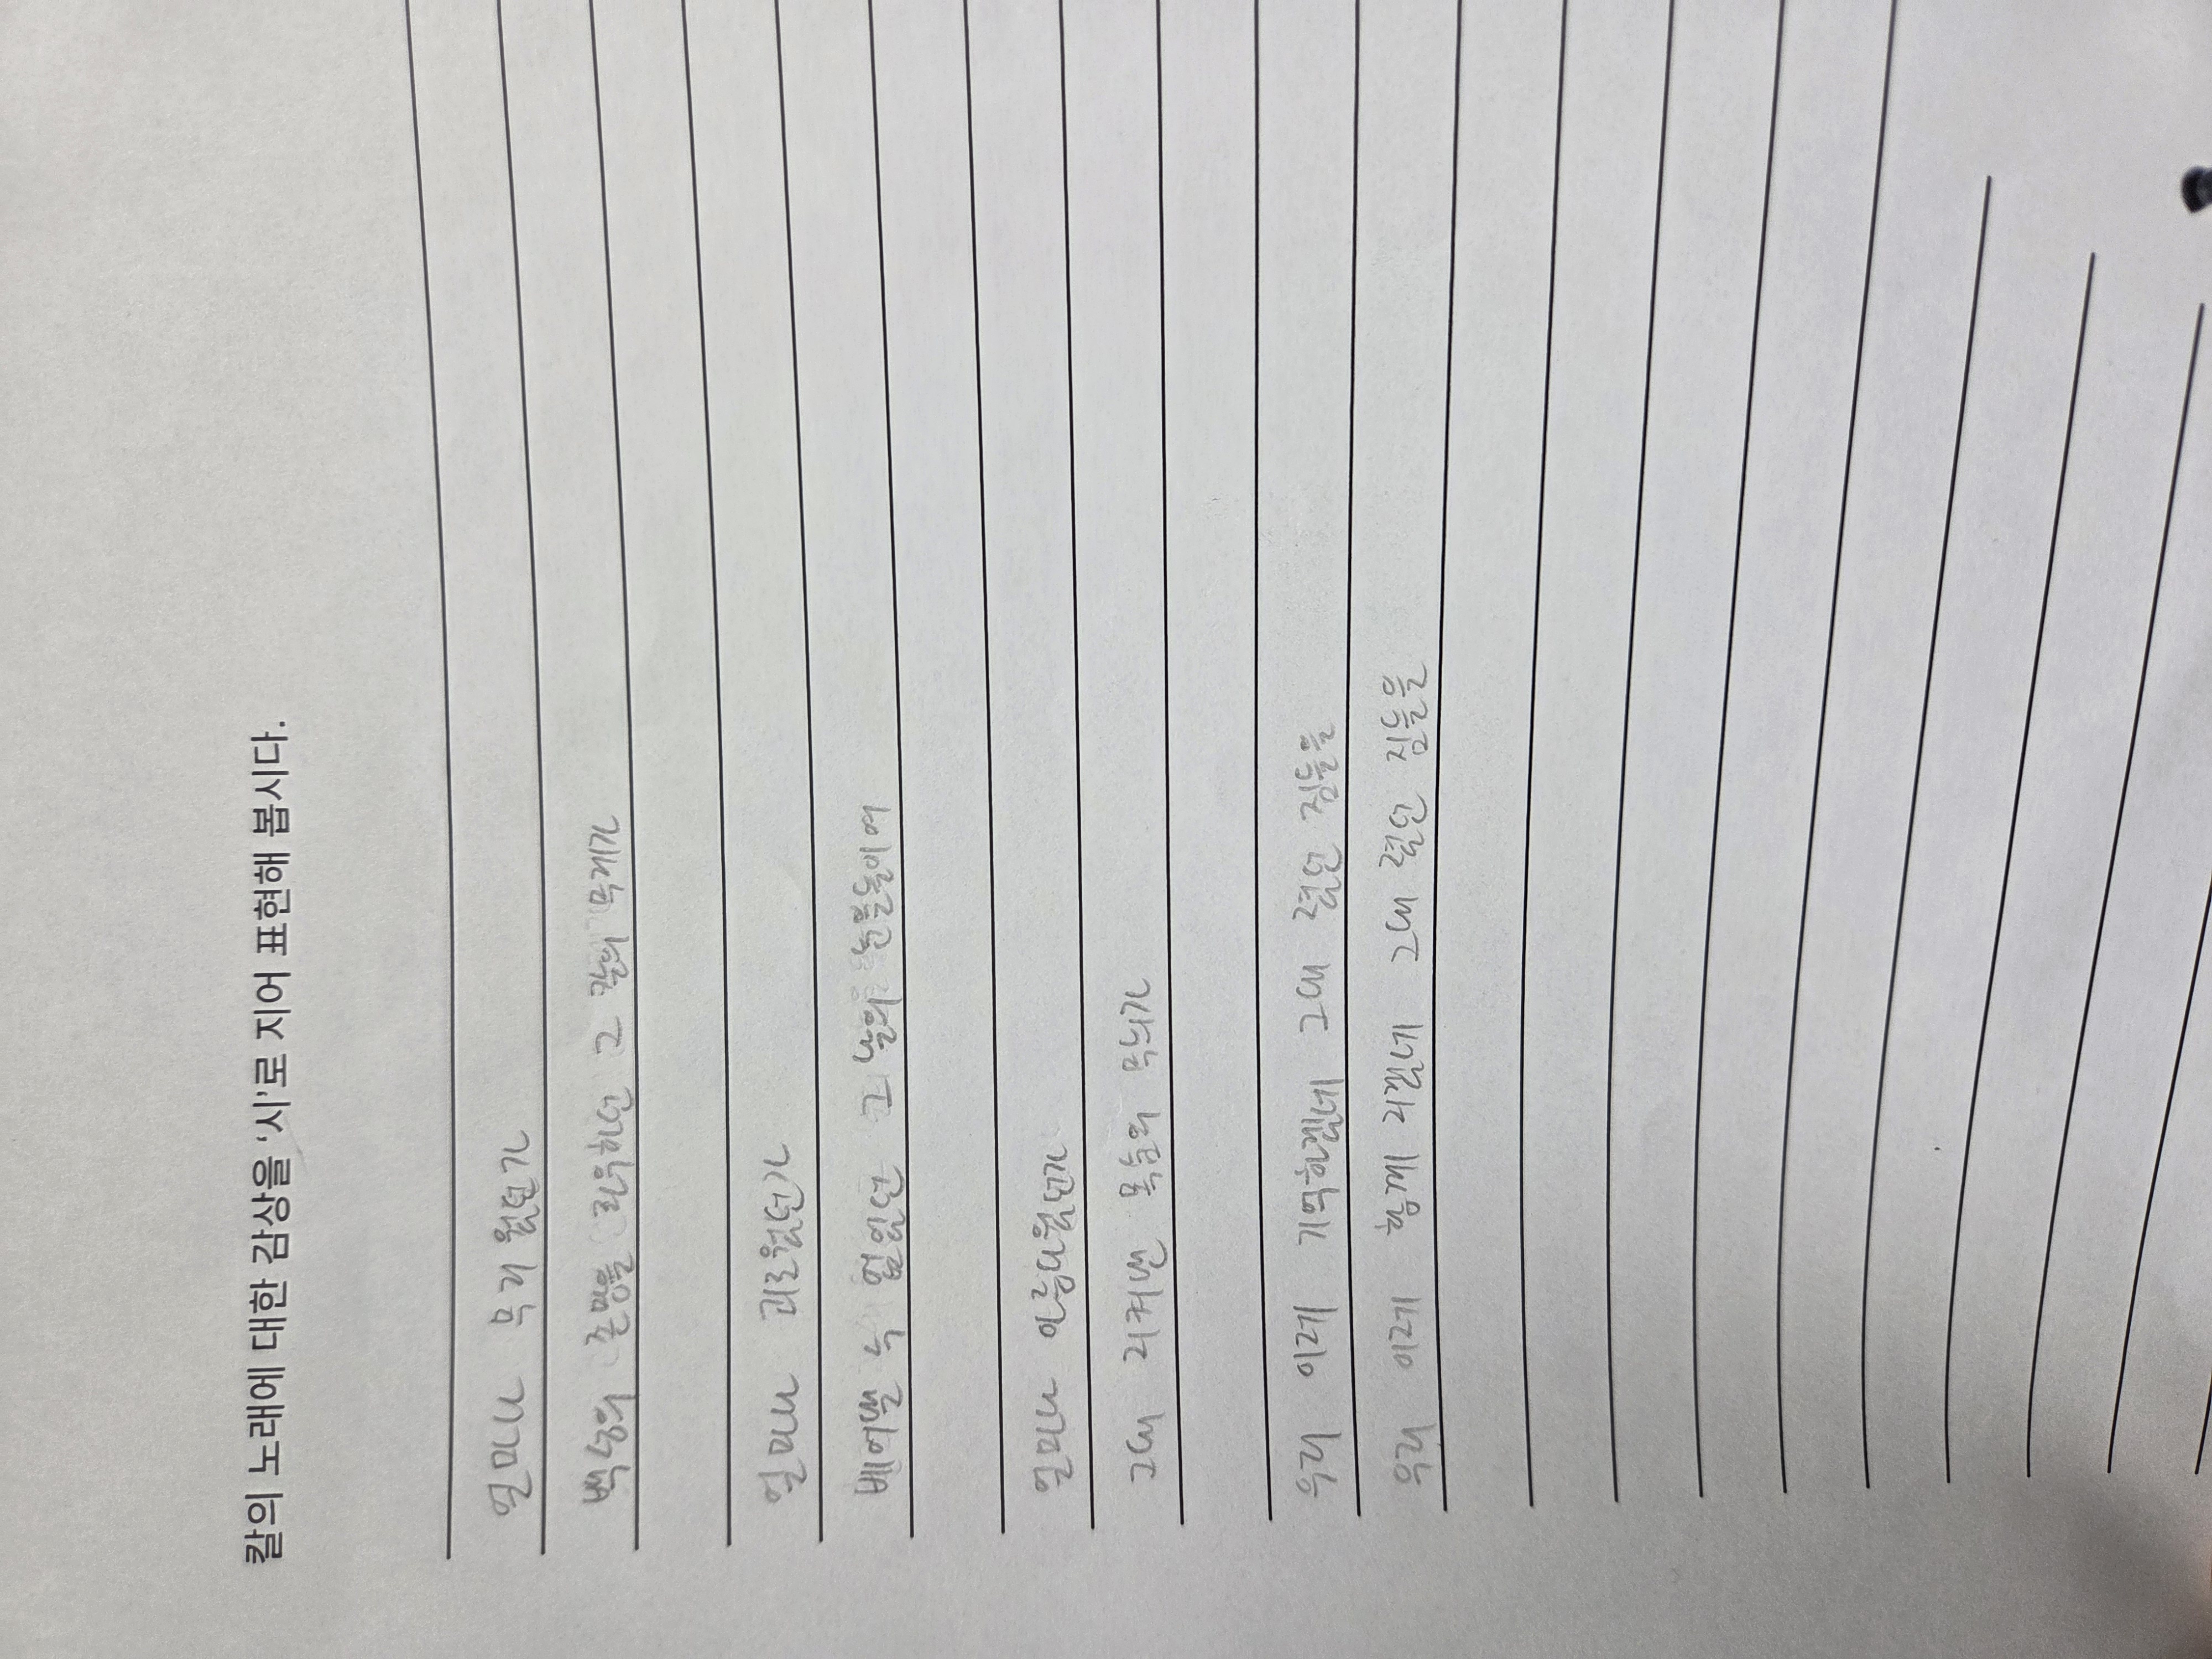 칼의 노래에 대한 감상을 '시'로 지어 표현해 봅시다.
얼마나 무거웠던가
백성의 존망을 좌우하던 그 칼의 무게가
얼마나 괴로웠던가
베어낼 수 없었던 그 날의 눈물들이여
얼마나 안타까웠던가
그대 지켜낸 목숨의 무늬가
우리 이제 기억하겠네 그대 졌던 짐들을
우리 이제 함께 지겠네 그대 졌던 짐들을